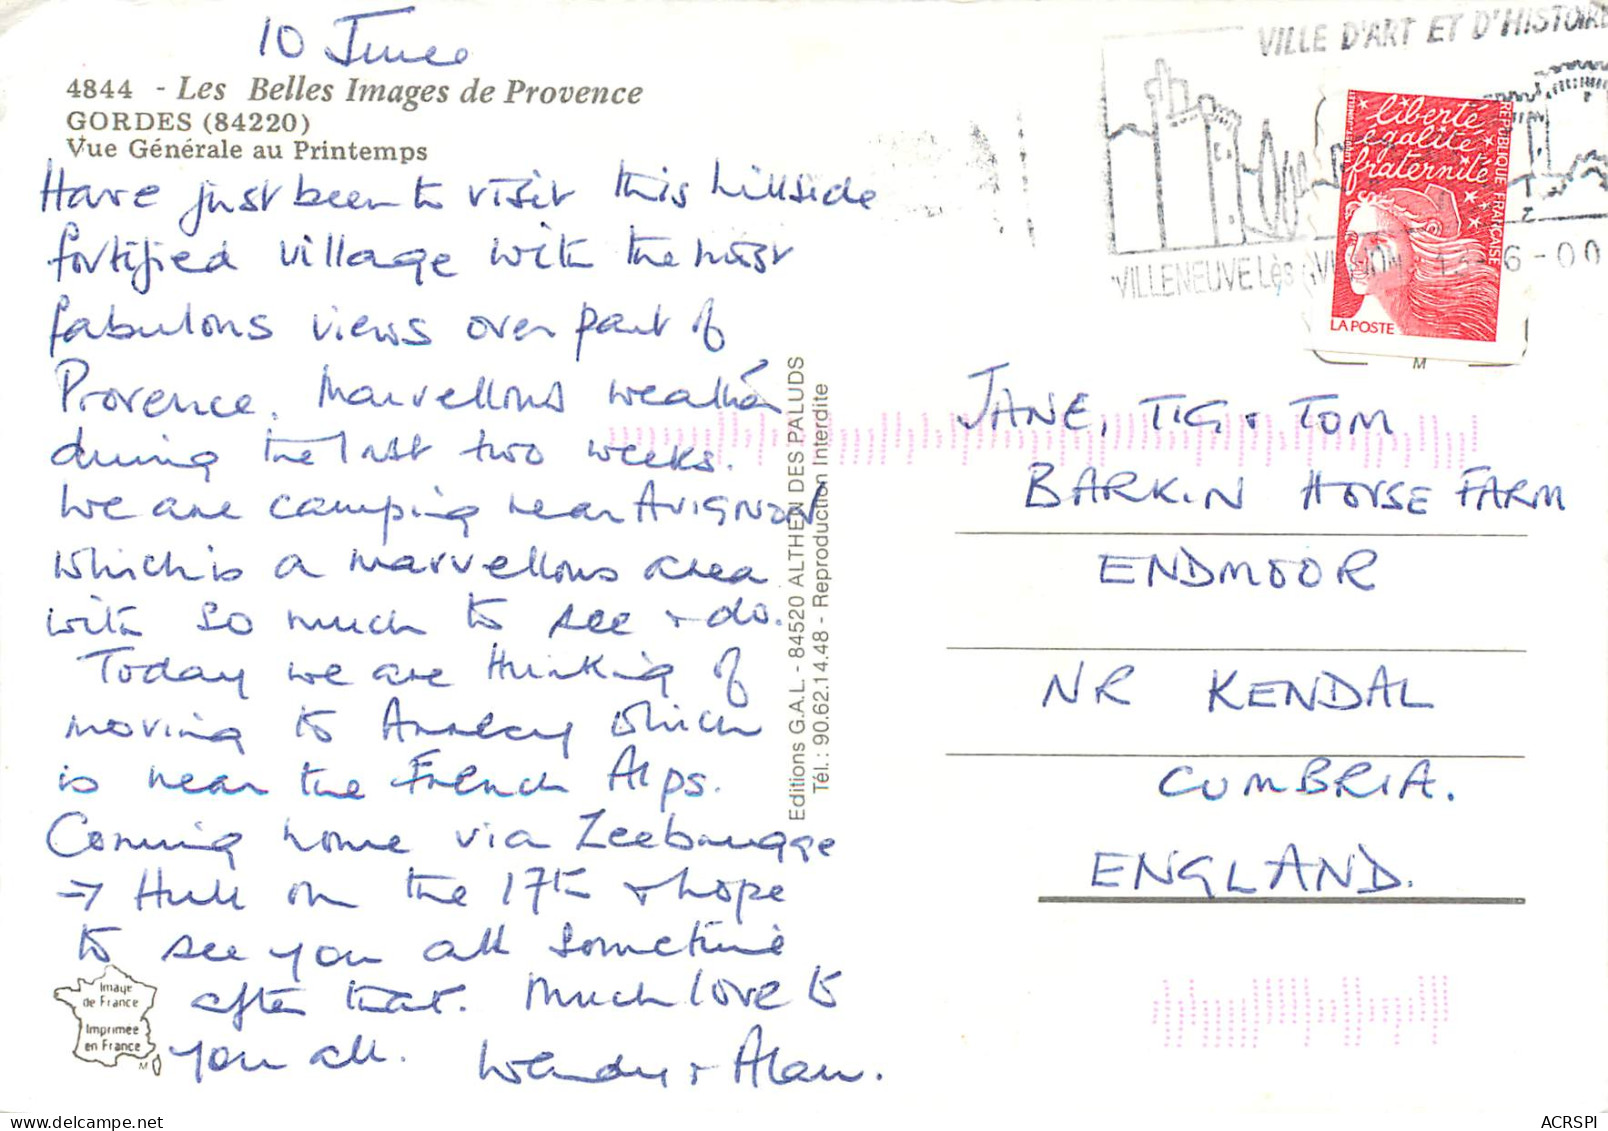 10 June
4844 - Les Belles Images de Provence
GORDES (84220)
Vue Générale au Printemps
Have just been to visit this hillside
fortified village with the most
fabulous views over part of
Provence. Marvellous weather
during the last two weeks.
We are camping near AVIGNON
which is a marvellous area
with so much to see + do.
Today we are thinking of
moving to Annecy which
is near the French Alps.
Coming home via Zeebrugge
→ Hull on the 17th + hope
to see you all sometime
after that. Much love to
you all. Wendy + Alan.
Image
de France
Imprimée
en France
M
Editions G.A.L. - 84520 ALTHEN DES PALUDS
Tél. : 90.62.14.48 - Reproduction Interdite
VILLE D'ART ET D'HISTOIRE
VILLENEUVE Lès AVIGNON 13-6-00
liberté,
égalité
fraternité
RÉPUBLIQUE FRANÇAISE
LA POSTE
M
JANE, TIG + TOM
BARKIN HOUSE FARM
ENDMOOR
NR KENDAL
CUMBRIA.
ENGLAND.
ACRSPI